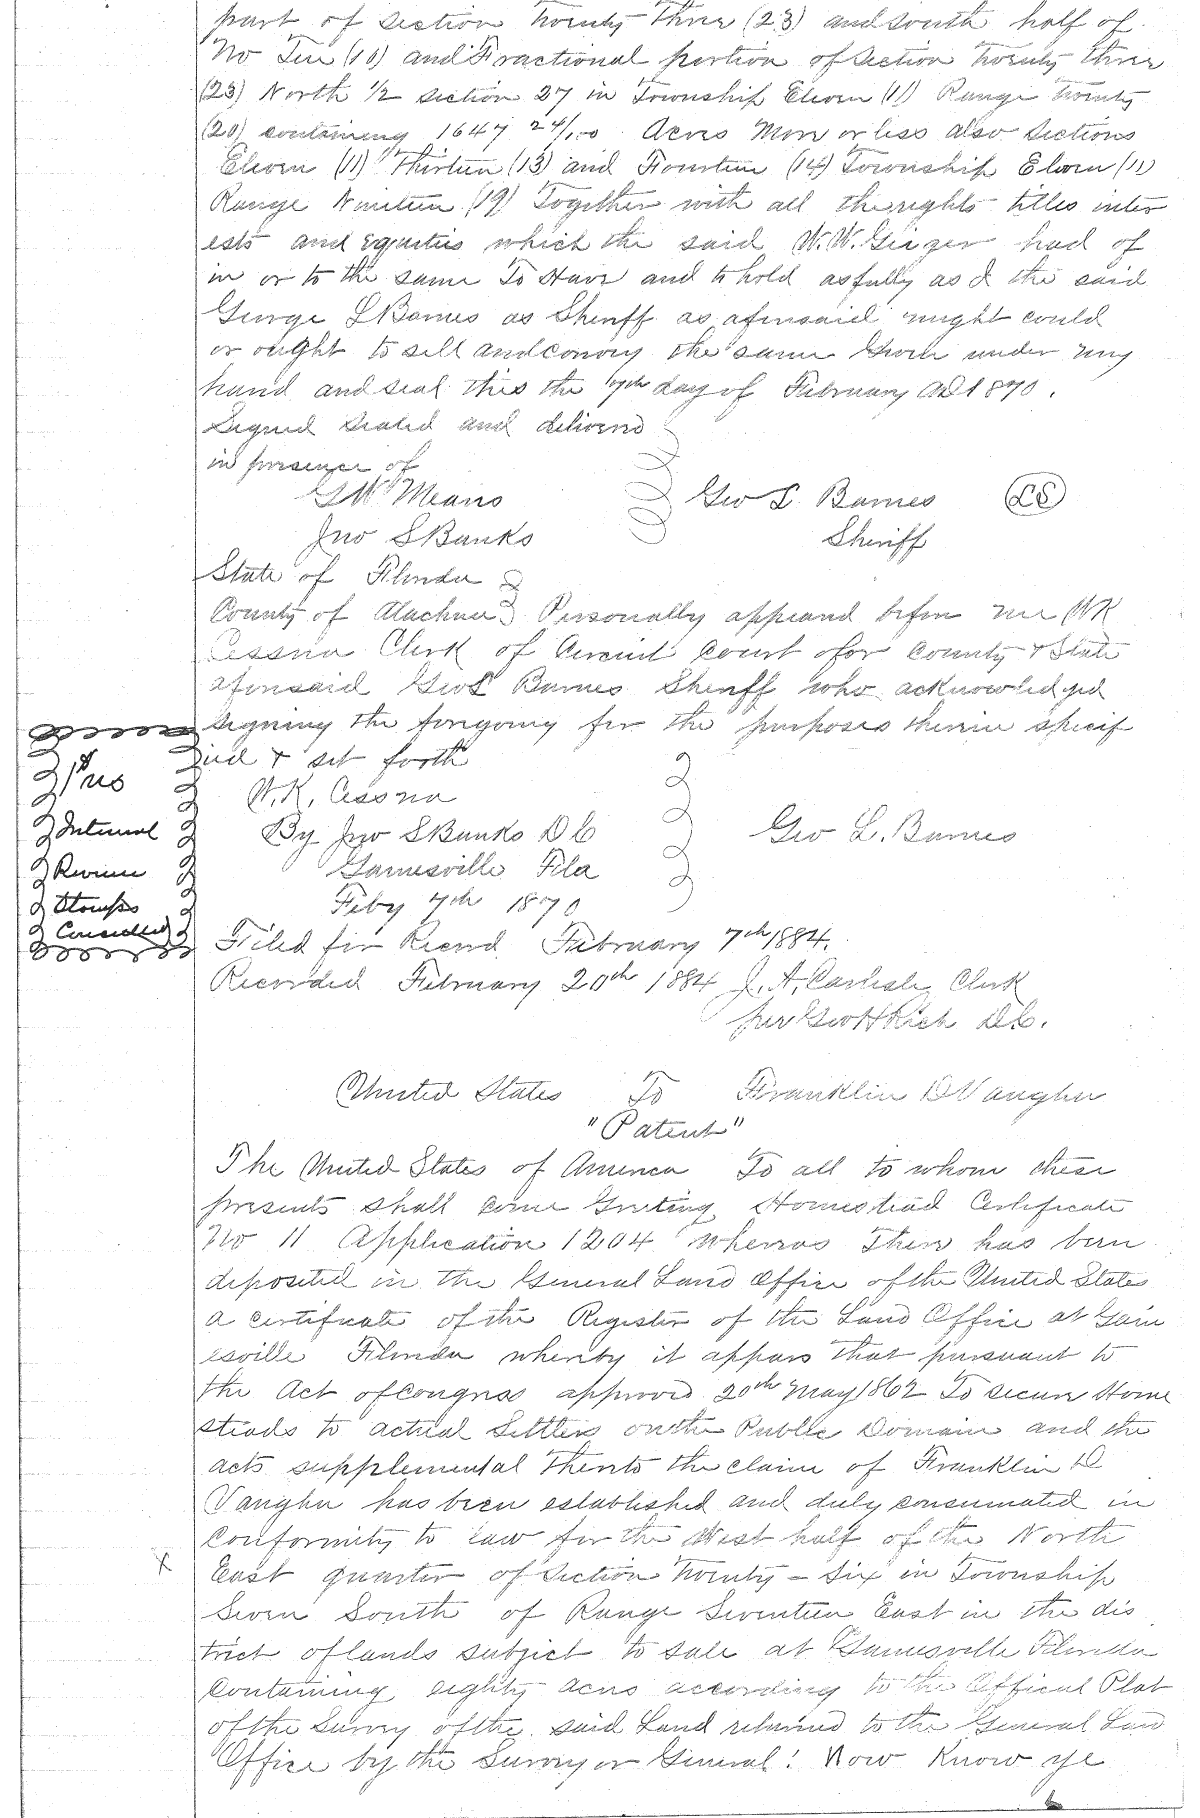 part of Section Twenty Three (23) and South half of
No Ten (10) and Fractional portion of Section Twenty three
(23) North 1/2 Section 27 in Township Eleven (11) Range Twenty
(20) containing 1647 24/100 Acres More or less also Sections
Eleven (11) Thirteen (13) and Fourteen (14) Township Eleven (11)
Range Nineteen (19) Together with all the rights titles inter
ests and equities which the said W. W. Geiger had of
in or to the same To Have and to hold as fully as I the said
George L Barnes as Sheriff as aforesaid might could
or ought to sell and convey the same Given under my
hand and seal this the 7th day of February AD 1870.
Signed sealed and delivered
in presence of
G W Means Geo L. Barnes (LS)
Jno S Banks Sheriff
State of Florida
County of Alachua Personally appeared before me W K
Cessna Clerk of Circuit Court for County & State
aforesaid Geo L Barnes Sheriff who acknowledged
signing the foregoing for the purposes therein specif
ied & set forth
$1 00
Internal
Revenue
Stamps
Cancelled
W. K. Cessna
By Jno S Banks D C Geo L. Barnes
Gainesville Fla
Feby 7th 1870
Filed for Record February 7th 1884.
Recorded February 20th 1884 J. A. Carlisle Clerk
per Geo H Rich D.C.
United States To Franklin D Vaughn
"Patent"
The United States of America To all to whom these
presents shall come Greeting Homestead Certificate
No 11 Application 1204 Whereas There has been
deposited in the General Land Office of the United States
a certificate of the Register of the Land Office at Gain
esville Florida whereby it appears that pursuant to
the Act of Congress approved 20th May 1862 To secure Home
steads to actual Settlers on the Public Domain and the
acts supplemental thereto the claim of Franklin D
Vaughn has been established and duly consumated in
conformity to law for the West half of the North
X East quarter of Section Twenty-six in Township
Seven South of Range Seventeen East in the dis
trict of lands subject to sale at Gainesville Florida
containing eighty acres according to the Offical Plat
of the Survey of the said Land returned to the General Land
Office by the Surveyor General: Now Know ye